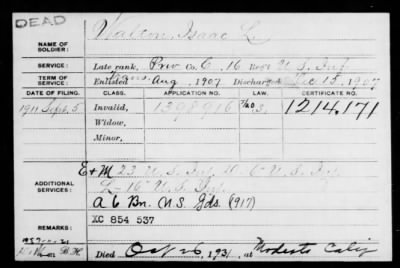 DEAD
NAME OF SOLDIER: Isaac L.
SERVICE: Late rank, Priv Co. E, 16 Reg't U. S. Inf
TERM OF SERVICE: Enlisted Aug 1907 Discharged Dec 15, 1907
DATE OF FILING. CLASS. APPLICATION NO. LAW. CERTIFICATE NO.
1911 Sept. 5 Invalid, 1398916 1214,171
Widow,
Minor,
E + M 23 U. S. Inf.
ADDITIONAL SERVICES: L- 16 U. S. Inf.
A 6 Bn. U.S. Gds. (917)
REMARKS: XC 854 537
Died Oct 26, 1931 at Modesto Calif